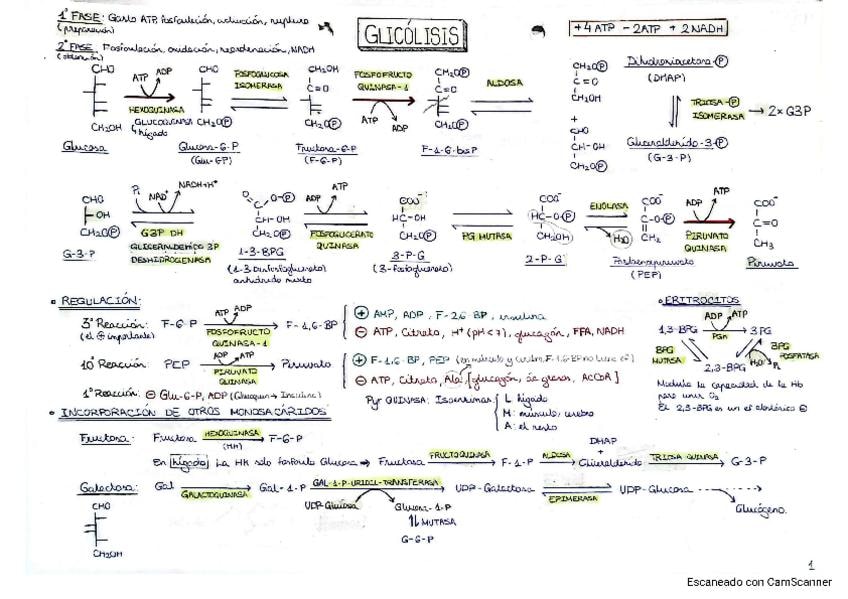 1ª FASE: Gasto ATP, fosforilación, activación, ruptura
(preparación)
GLICÓLISIS
+4ATP - 2ATP + 2NADH
2ª FASE: Fosforilación, oxidación, reordenación, NADH
(obtención)
CHO
CH₂OH
Glucosa
ATP ADP
HEXOQUINASA
GLUCOQUINASA
↳ hígado
CHO
CH₂O(P)
Glucosa-6-P
(Glu-6P)
FOSFOGLUCOSA
ISOMERASA
CH₂OH
C=O
CH₂O(P)
Fructosa-6-P
(F-6-P)
FOSFOFRUCTO
QUINASA-1
ATP ADP
CH₂O(P)
C=O
CH₂O(P)
F-1-6-bisP
ALDOSA
CH₂O(P)
C=O
CH₂OH
+
CHO
CH-OH
CH₂O(P)
Dihidroxiacetona-(P)
(DMAP)
TRIOSA-(P)
ISOMERASA → 2×G3P
Gliceraldehído-3-(P)
(G-3-P)
CHO
OH
CH₂O(P)
G-3-P
Pi NAD⁺ NADH+H⁺
G3P DH
GLICERALDEHÍDO 3P
DESHIDROGENASA
O O-(P)
C
CH-OH
CH₂O(P)
1-3-BPG
anhídrido mixto
ADP ATP
FOSFOGLICERATO
QUINASA
COO⁻
HC-OH
CH₂O(P)
3-P-G
(3-fosfoglicerato)
PG MUTASA
COO⁻
HC-O(P)
CH₂OH
2-P-G
ENOLASA
H₂O
COO⁻
C-O-(P)
CH₂
Fosfoenolpiruvato
(PEP)
ADP ATP
PIRUVATO
QUINASA
COO⁻
C=O
CH₃
Piruvato
• REGULACIÓN:
3ª Reacción: F-6-P → F-1,6-BP
(el + importante)
ATP ADP
FOSFOFRUCTO
QUINASA-1
⊕ AMP, ADP, F-2,6-BP, insulina
⊖ ATP, Citrato, H⁺ (pH<7), glucagón, FFA, NADH
10ª Reacción: PEP → Piruvato
ADP ATP
PIRUVATO
QUINASA
⊕ F-1,6-BP, PEP
⊖ ATP, Citrato, Ala, [glucagón, ác grasos, AcCoA]
1ª Reacción: ⊖ Glu-6-P, ADP (Glucagon → Insulina)
Pyr QUINASA: Isoenzimas
L hígado
M: músculo, cerebro
A: el resto
• ERITROCITOS
ADP ATP
1,3-BPG → 3PG
PGK
BPG
MUTASA
2,3-BPG
H₂O Pi
BPG
FOSFATASA
Modula la capacidad de la Hb
para unir O₂
El 2,3-BPG es un ef alostérico ⊖
• INCORPORACIÓN DE OTROS MONOSACÁRIDOS
Fructosa: Fructosa → F-6-P
HEXOQUINASA
En hígado la HK sólo fosforila Glucosa → Fructosa → F-1-P → DHAP + Gliceraldehído → G-3-P
FRUCTOQUINASA
ALDOSA
TRIOSA QUINASA
Galactosa: Gal → Gal-1-P → UDP-Galactosa ⇌ UDP-Glucosa ⇢ Glucógeno.
GALACTOQUINASA
GAL-1-P-URIDIL-TRANSFERASA
EPIMERASA
UDP-Glucosa
Glucosa-1-P
⥮ MUTASA
G-6-P
CHO
CH₂OH
1
Escaneado con CamScanner